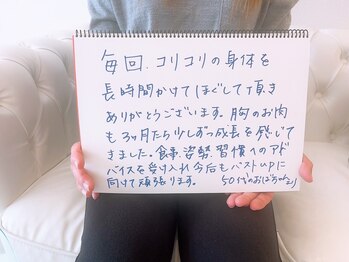 毎回、コリコリの身体を
長時間かけてほぐして頂き
ありがとうございます。胸のお肉
も3ヶ月たら少しずつ成長を感じて
きました。食事、姿勢、習慣へのアド
バイスを受け入れ今后もバストupに
向けて頑張ります。 50代のおばちゃん